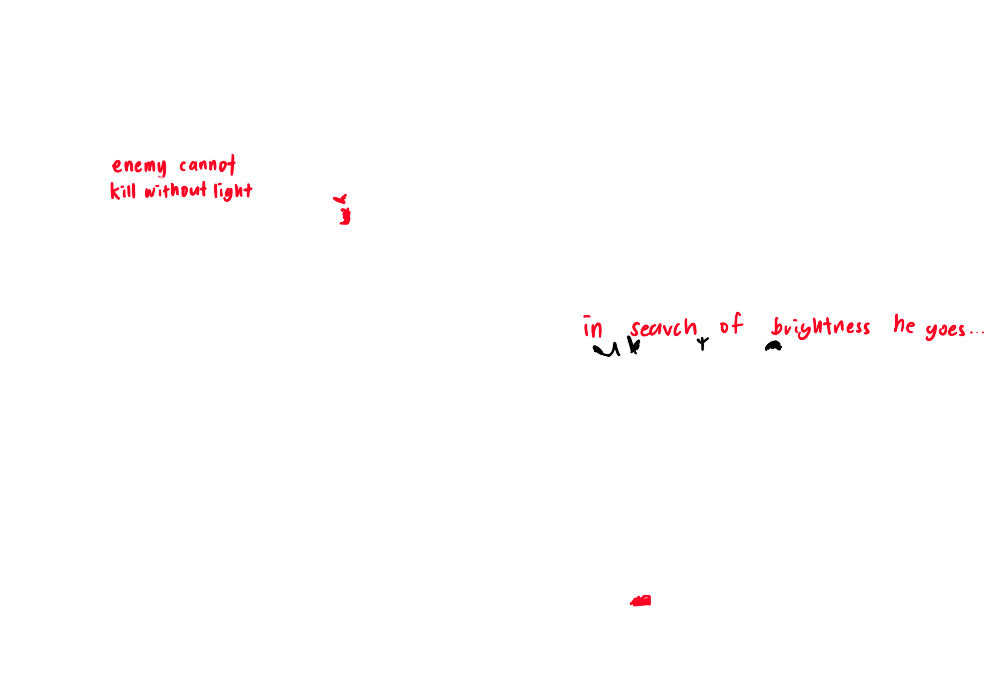 enemy cannot
kill without light
in search of brightness he goes...